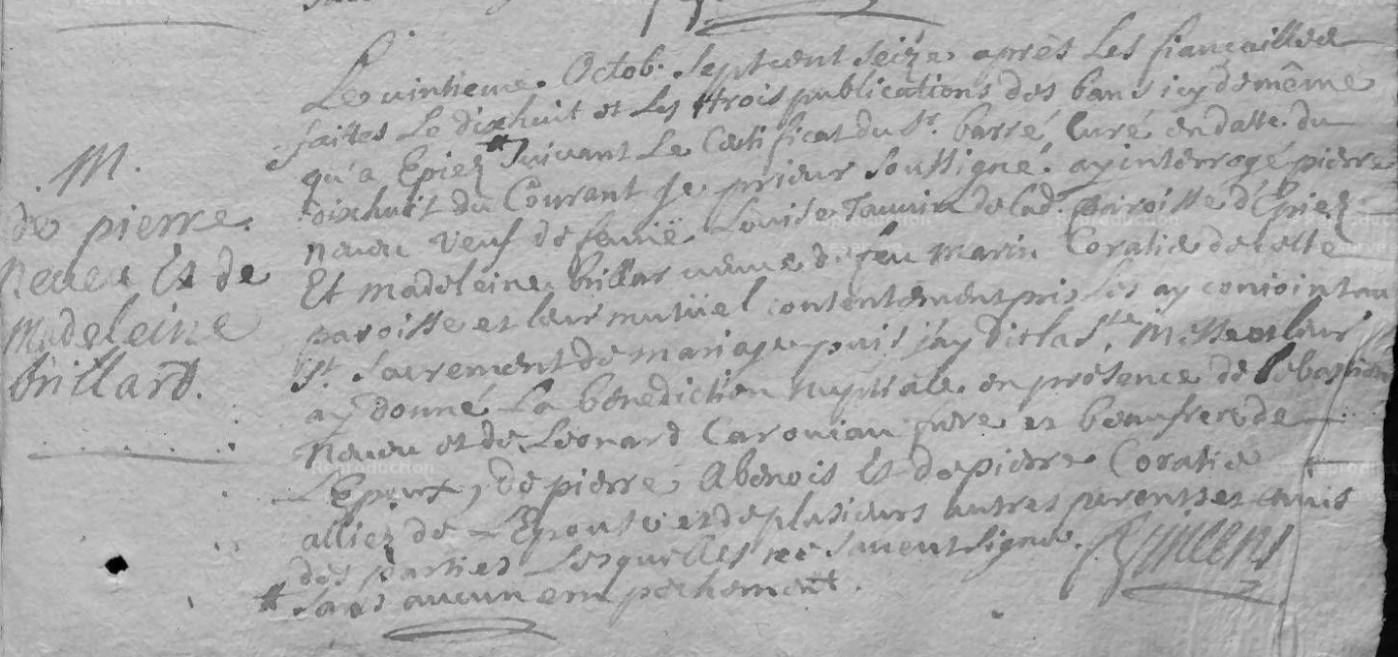 M.
de pierre
neveu Et de
Madeleine
brillard.
Le vintieme Octob. Sept cent Seize après Les fiançailles
faittes Le dixhuit et Les trois publications des bans icy de même
qu'a Epiez # Suivant Le Certificat du Sr. barré Curé en datte du
dixhuit du Courant Je prieur Soussigné ay interrogé pierre
neveu veuf de feüe Louise Tauvin de lad. paroisse d'Epiez
Et madeleine brillar veuve de feu marin Coratie de cette
paroisse et leur mutüel contentement pris Les ay conioint au
St. Sacrement de mariage puis j'ay dit la Ste. Messe et leur
ay donné La benediction nuptiale en présence de Sebastien
neveu et de Léonard Carouiau frere et beaufrere de
L'Epoux, de pierre Abenois Et de pierre Coratie
alliez de L'Epouse et de plusieurs autres parents et amis
des parties Lesquelles ne Savent Signer.
# Sans aucun empechement.